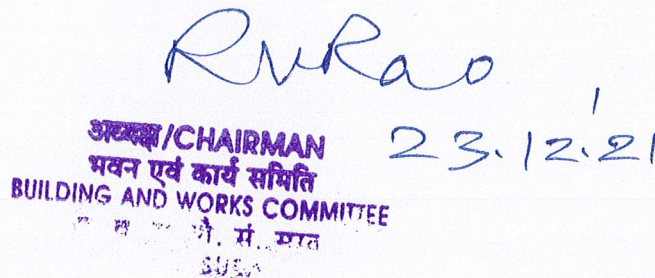 RVRao
23.12.21
अध्यक्ष/CHAIRMAN
भवन एवं कार्य समिति
BUILDING AND WORKS COMMITTEE